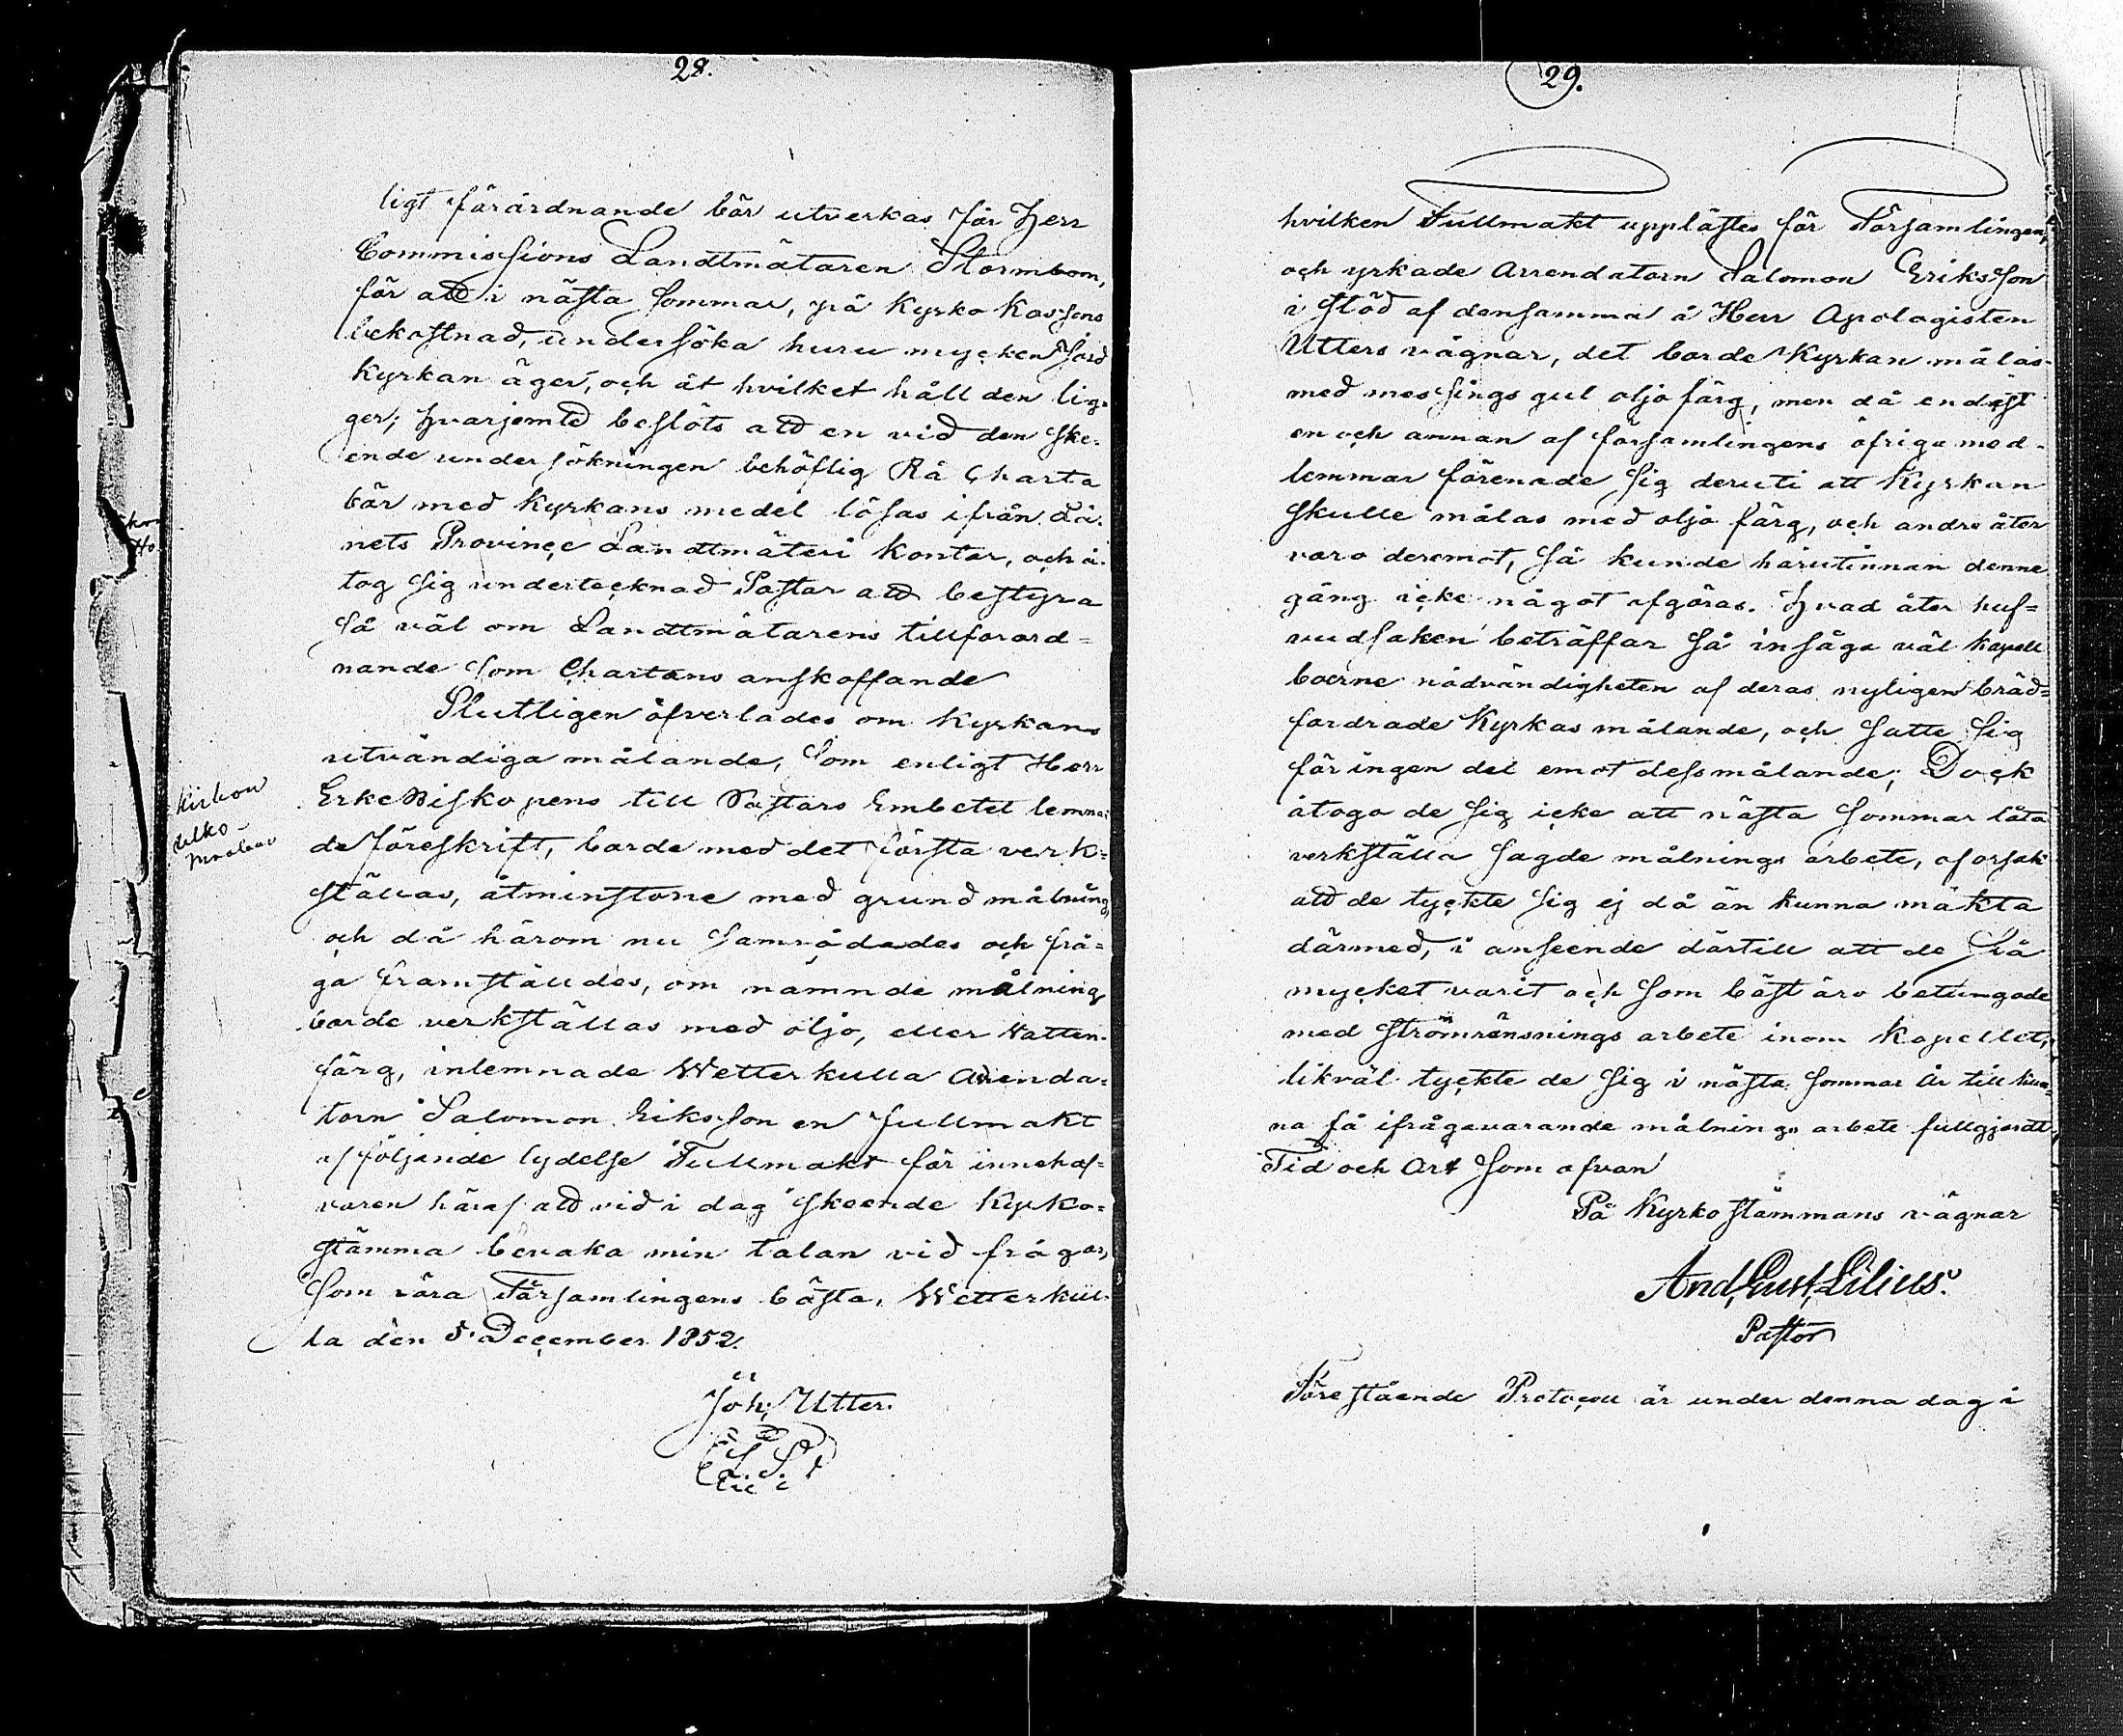 28.
ligt förordnande bör utverkas för Herr
Commissions Landtmätaren Stormbom,
för att i nästa sommar, på Kyrko Kassans
bekostnad, undersöka huru mycken Jord
Kyrkan äger, och åt hvilket håll den lig-
ger; hvarjemte beslöts att en vid den ske-
ende undersökningen behöflig Rå Charta
bör med Kyrkans medel lösas ifrån Lä-
nets Provinçe Landtmäteri Kontor, och å-
tog sig undertecknad Pastor att bestyra
så väl om Landtmätarens tillförord-
nande som Chartans anskaffande
Slutligen öfverlades om Kyrkans
utvändiga målande, som enligt Herr
ErkeBiskopens till Pastors Embetet lemna-
de föreskrift, borde med det första verk-
ställas, åtminstone med grundmålning,
och då härom nu samrådades och frå-
ga framställdes, om nämnde målning
borde verkställas med oljo, eller Vatten-
färg, inlemnade Wetterkulla Arenda-
torn Salomon Eriksson en fullmakt
af följande lydelse Fullmakt för innehaf-
varen häraf att vid i dag skeende Kyrko-
stämma bevaka min talan vid frågor,
som röra Församlingens bästa. Wetterkul-
la den 5 December 1852.
Joh: Utter.
Kirkon
ulko-
maalaus
29.
hvilken Fullmakt upplästes för Församlingen,
och yrkade Arrendatorn Salomon Eriksson
i stöd af densamma å Herr Apologisten
Utters vägnar, det borde Kyrkan målas
med messings gul oljofärg, men då endast
en och annan af församlingens öfriga med-
lemmar förenade sig deruti att Kyrkan
skulle målas med oljo färg, och andre åter
voro deremot, så kunde härutinnan denne
gång icke något afgöras. Hvad åter huf-
vudsaken beträffar så insågo väl Kapell
boerne nödvändigheten af deras nyligen bräd-
fordrade Kyrkas målande, och satte sig
för ingen del emot dess målande; Dock
åtogo de sig icke att nästa sommar låta
verkställa sagde målnings arbete, af orsak
att de tyckte sig ej då än kunna mäkta
därmed, i anseende därtill att de så
mycket varit och som bäst äro betungade
med strömrensnings arbete inom Kapellet,
likväl tyckte de sig i nästa sommar År till kun-
na få ifrågavarande målnings arbete fullgjordt,
Tid och Ort som ofvan
På Kyrkostämmans vägnar
And, Gust, Lilius.
Pastor
Förestående Protocoll är under denna dag i